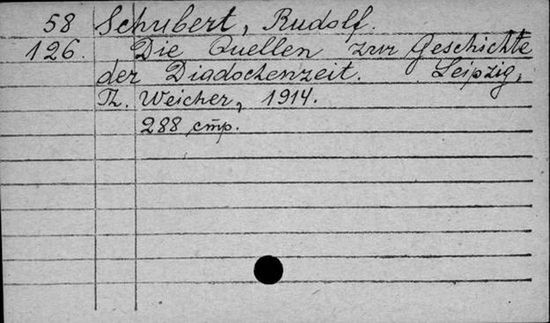 58 Schubert, Rudolf.
126. Die Quellen zur Geschichte
der Diadochenzeit. Leipzig,
Th. Weicher, 1914.
288 стр.